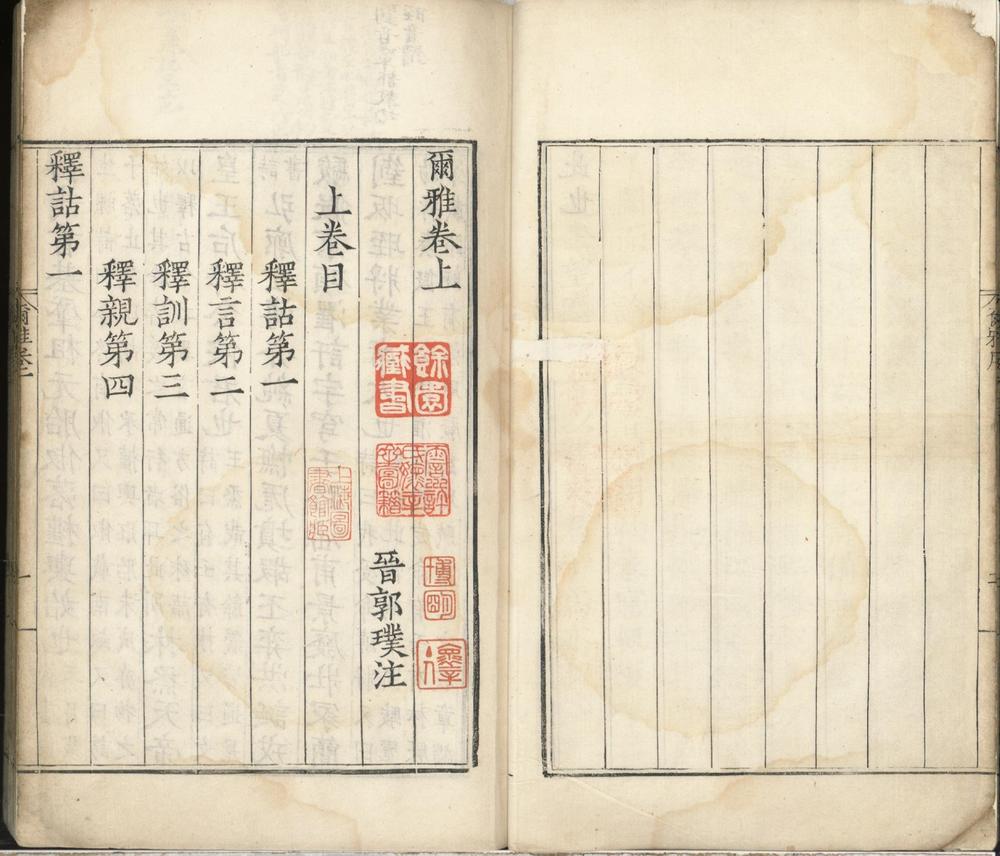 爾雅卷上
晉郭璞注
上卷目
釋詁第一
釋言第二
釋訓第三
釋親第四
釋詁第一
餘園
藏書
博明